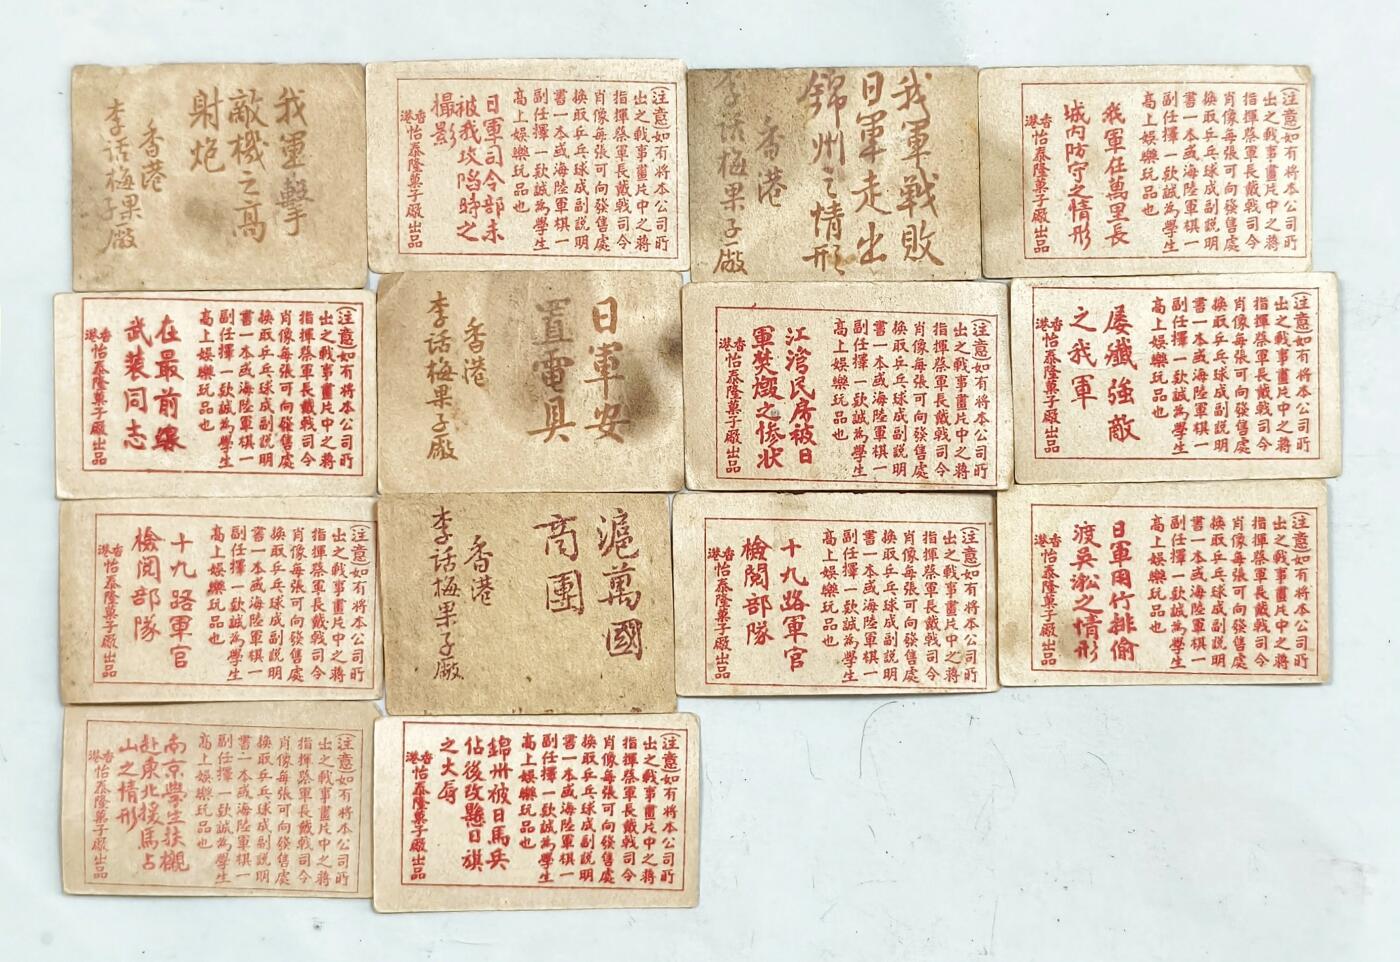 我軍擊
敵機之高
射炮
香港
李話梅果子廠
(注意)如有將本公司所
出之戰事畫片中之蔣
指揮蔡軍長戴戟司令
肖像每張可向發售處
換取乒乓球成副説明
書一本或海陸軍棋一
副任擇一欵誠為學生
高上娛樂玩品也
日軍司令部未
被我攻陷時之
撮影
香港怡泰隆菓子廠出品
我軍戰敗
日軍走出
錦州之情形
香港
李話梅果子廠
(注意)如有將本公司所
出之戰事畫片中之蔣
指揮蔡軍長戴戟司令
肖像每張可向發售處
換取乒乓球成副説明
書一本或海陸軍棋一
副任擇一欵誠為學生
高上娛樂玩品也
我軍在萬里長
城內防守之情形
香港怡泰隆菓子廠出品
(注意)如有將本公司所
出之戰事畫片中之蔣
指揮蔡軍長戴戟司令
肖像每張可向發售處
換取乒乓球成副説明
書一本或海陸軍棋一
副任擇一欵誠為學生
高上娛樂玩品也
在最前線
武装同志
香港怡泰隆菓子廠出品
日軍安
置電具
香港
李話梅菓子廠
(注意)如有將本公司所
出之戰事畫片中之蔣
指揮蔡軍長戴戟司令
肖像每張可向發售處
換取乒乓球成副説明
書一本或海陸軍棋一
副任擇一欵誠為學生
高上娛樂玩品也
江湾民房被日
軍焚燬之慘状
香港怡泰隆菓子廠出品
(注意)如有將本公司所
出之戰事畫片中之蔣
指揮蔡軍長戴戟司令
肖像每張可向發售處
換取乒乓球成副説明
書一本或海陸軍棋一
副任擇一欵誠為學生
高上娛樂玩品也
屡殲強敵
之我軍
香港怡泰隆菓子廠出品
(注意)如有將本公司所
出之戰事畫片中之蔣
指揮蔡軍長戴戟司令
肖像每張可向發售處
換取乒乓球成副説明
書一本或海陸軍棋一
副任擇一欵誠為學生
高上娛樂玩品也
十九路軍官
檢閱部隊
香港怡泰隆菓子廠出品
滬萬國
商團
香港
李話梅果子廠
(注意)如有將本公司所
出之戰事畫片中之蔣
指揮蔡軍長戴戟司令
肖像每張可向發售處
換取乒乓球成副説明
書一本或海陸軍棋一
副任擇一欵誠為學生
高上娛樂玩品也
十九路軍官
檢閱部隊
香港怡泰隆菓子廠出品
(注意)如有將本公司所
出之戰事畫片中之蔣
指揮蔡軍長戴戟司令
肖像每張可向發售處
換取乒乓球成副説明
書一本或海陸軍棋一
副任擇一欵誠為學生
高上娛樂玩品也
日軍用竹排偷
渡吳淞之情形
香港怡泰隆菓子廠出品
(注意)如有將本公司所
出之戰事畫片中之蔣
指揮蔡軍長戴戟司令
肖像每張可向發售處
換取乒乓球成副説明
書一本或海陸軍棋一
副任擇一欵誠為學生
高上娛樂玩品也
南京學生扶櫬
赴東北援馬占
山之情形
香港怡泰隆菓子廠出品
(注意)如有將本公司所
出之戰事畫片中之蔣
指揮蔡軍長戴戟司令
肖像每張可向發售處
換取乒乓球成副説明
書一本或海陸軍棋一
副任擇一欵誠為學生
高上娛樂玩品也
錦州被日馬兵
佔後改懸日旗
之大辱
香港怡泰隆菓子廠出品